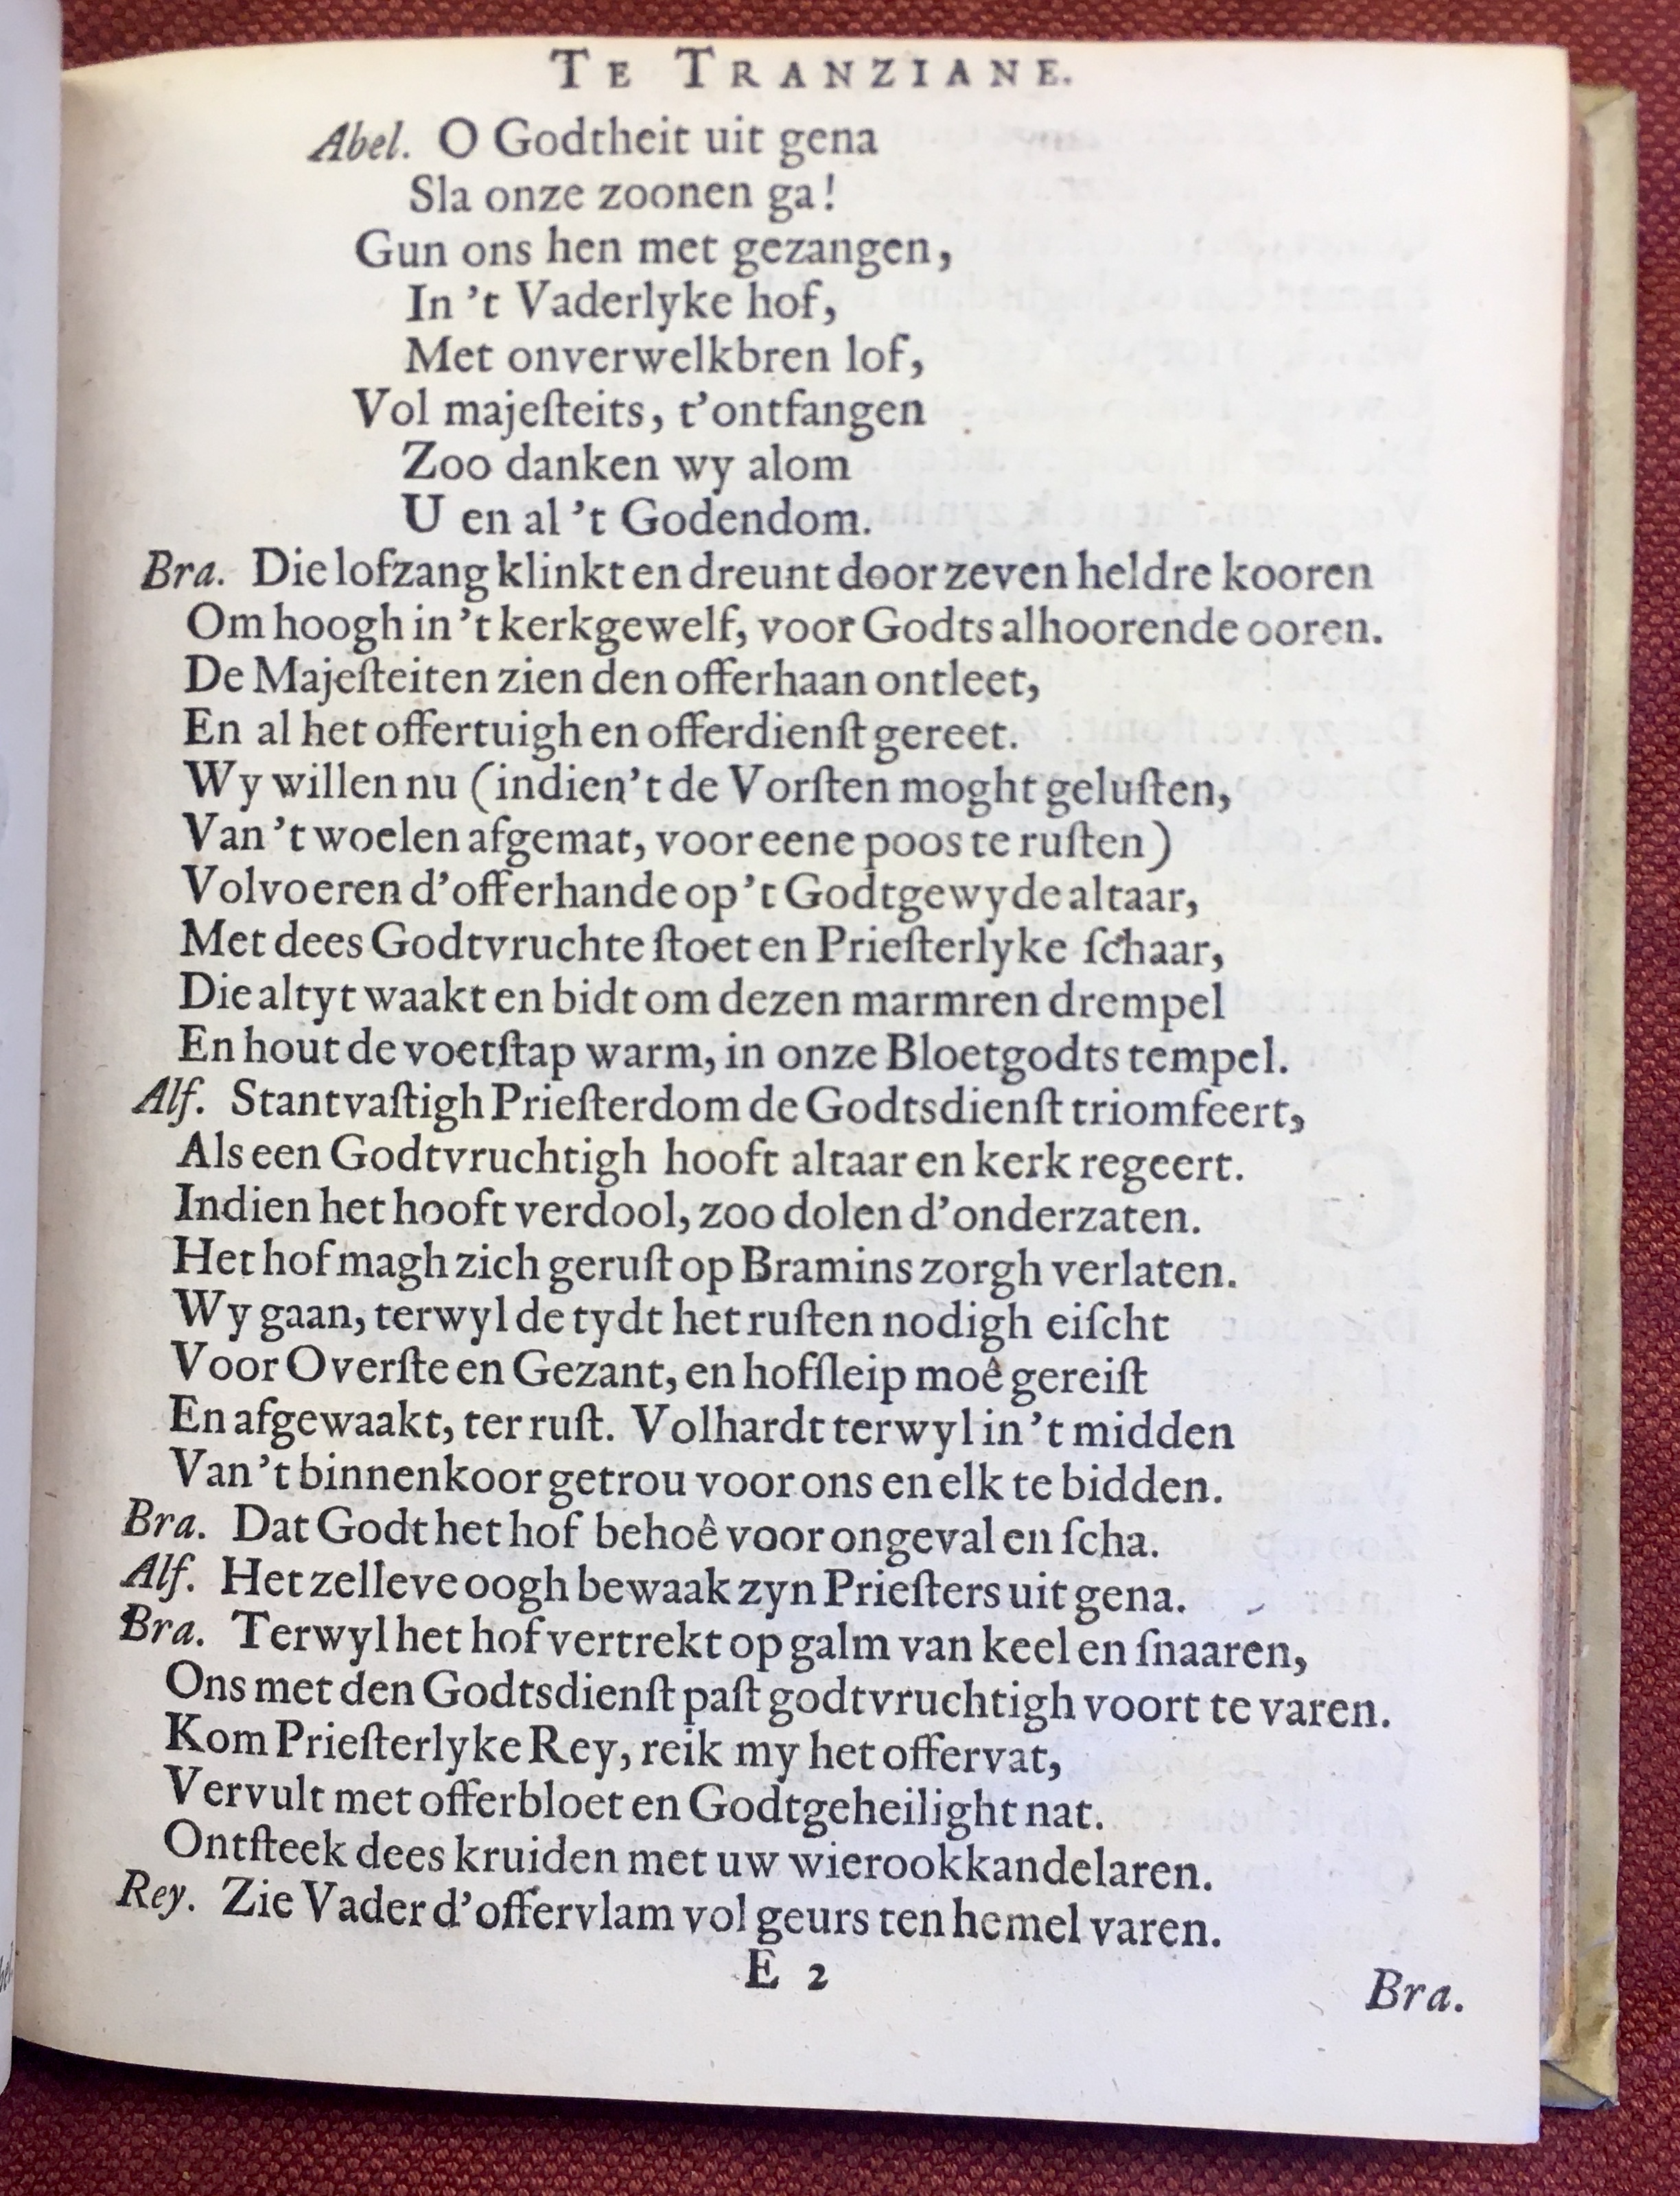 TE TRANZIANE.
Abel. O Godtheit uit gena
Sla onze zoonen ga!
Gun ons hen met gezangen,
In 't Vaderlyke hof,
Met onverwelkbren lof,
Vol majeſteits, t'ontfangen
Zoo danken wy alom
U en al 't Godendom.
Bra. Die lofzang klinkt en dreunt door zeven heldre kooren
Om hoogh in 't kerkgewelf, voor Godts alhoorende ooren.
De Majeſteiten zien den offerhaan ontleet,
En al het offertuigh en offerdienſt gereet.
Wy willen nu (indien't de Vorſten moght geluſten,
Van 't woelen afgemat, voor eene poos te ruſten)
Volvoeren d'offerhande op 't Godtgewyde altaar,
Met dees Godtvruchte ſtoet en Prieſterlyke ſchaar,
Die altyt waakt en bidt om dezen marmren drempel
En hout de voetſtap warm, in onze Bloetgodts tempel.
Alf. Stantvaſtigh Prieſterdom de Godtsdienſt triomfeert,
Als een Godtvruchtigh hooft altaar en kerk regeert.
Indien het hooft verdool, zoo dolen d'onderzaten.
Het hof magh zich geruſt op Bramins zorgh verlaten.
Wy gaan, terwyl de tydt het ruſten nodigh eiſcht
Voor Overſte en Gezant, en hofſleip moê gereiſt
En afgewaakt, ter ruſt. Volhardt terwyl in 't midden
Van 't binnenkoor getrou voor ons en elk te bidden.
Bra. Dat Godt het hof behoê voor ongeval en ſcha.
Alf. Het zelleve oogh bewaak zyn Prieſters uit gena.
Bra. Terwyl het hof vertrekt op galm van keel en ſnaaren,
Ons met den Godtsdienſt paſt godtvruchtigh voort te varen.
Kom Prieſterlyke Rey, reik my het offervat,
Vervult met offerbloet en Godtgeheilight nat.
Ontſteek dees kruiden met uw wierookkandelaren.
Rey. Zie Vader d'offervlam vol geurs ten hemel varen.
E 2
Bra.